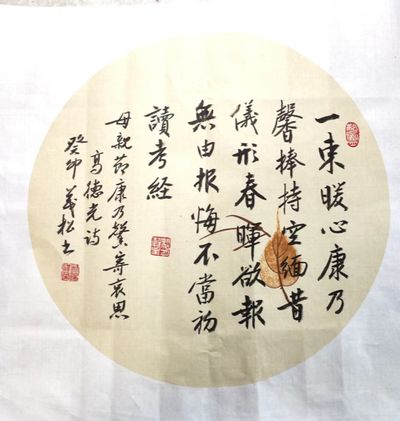 一束暖心康乃
馨捧持空緬昔
儀形春暉欲報
無由報悔不當初
讀孝經
母親節康乃馨寄哀思
高德光詩
癸卯義松书